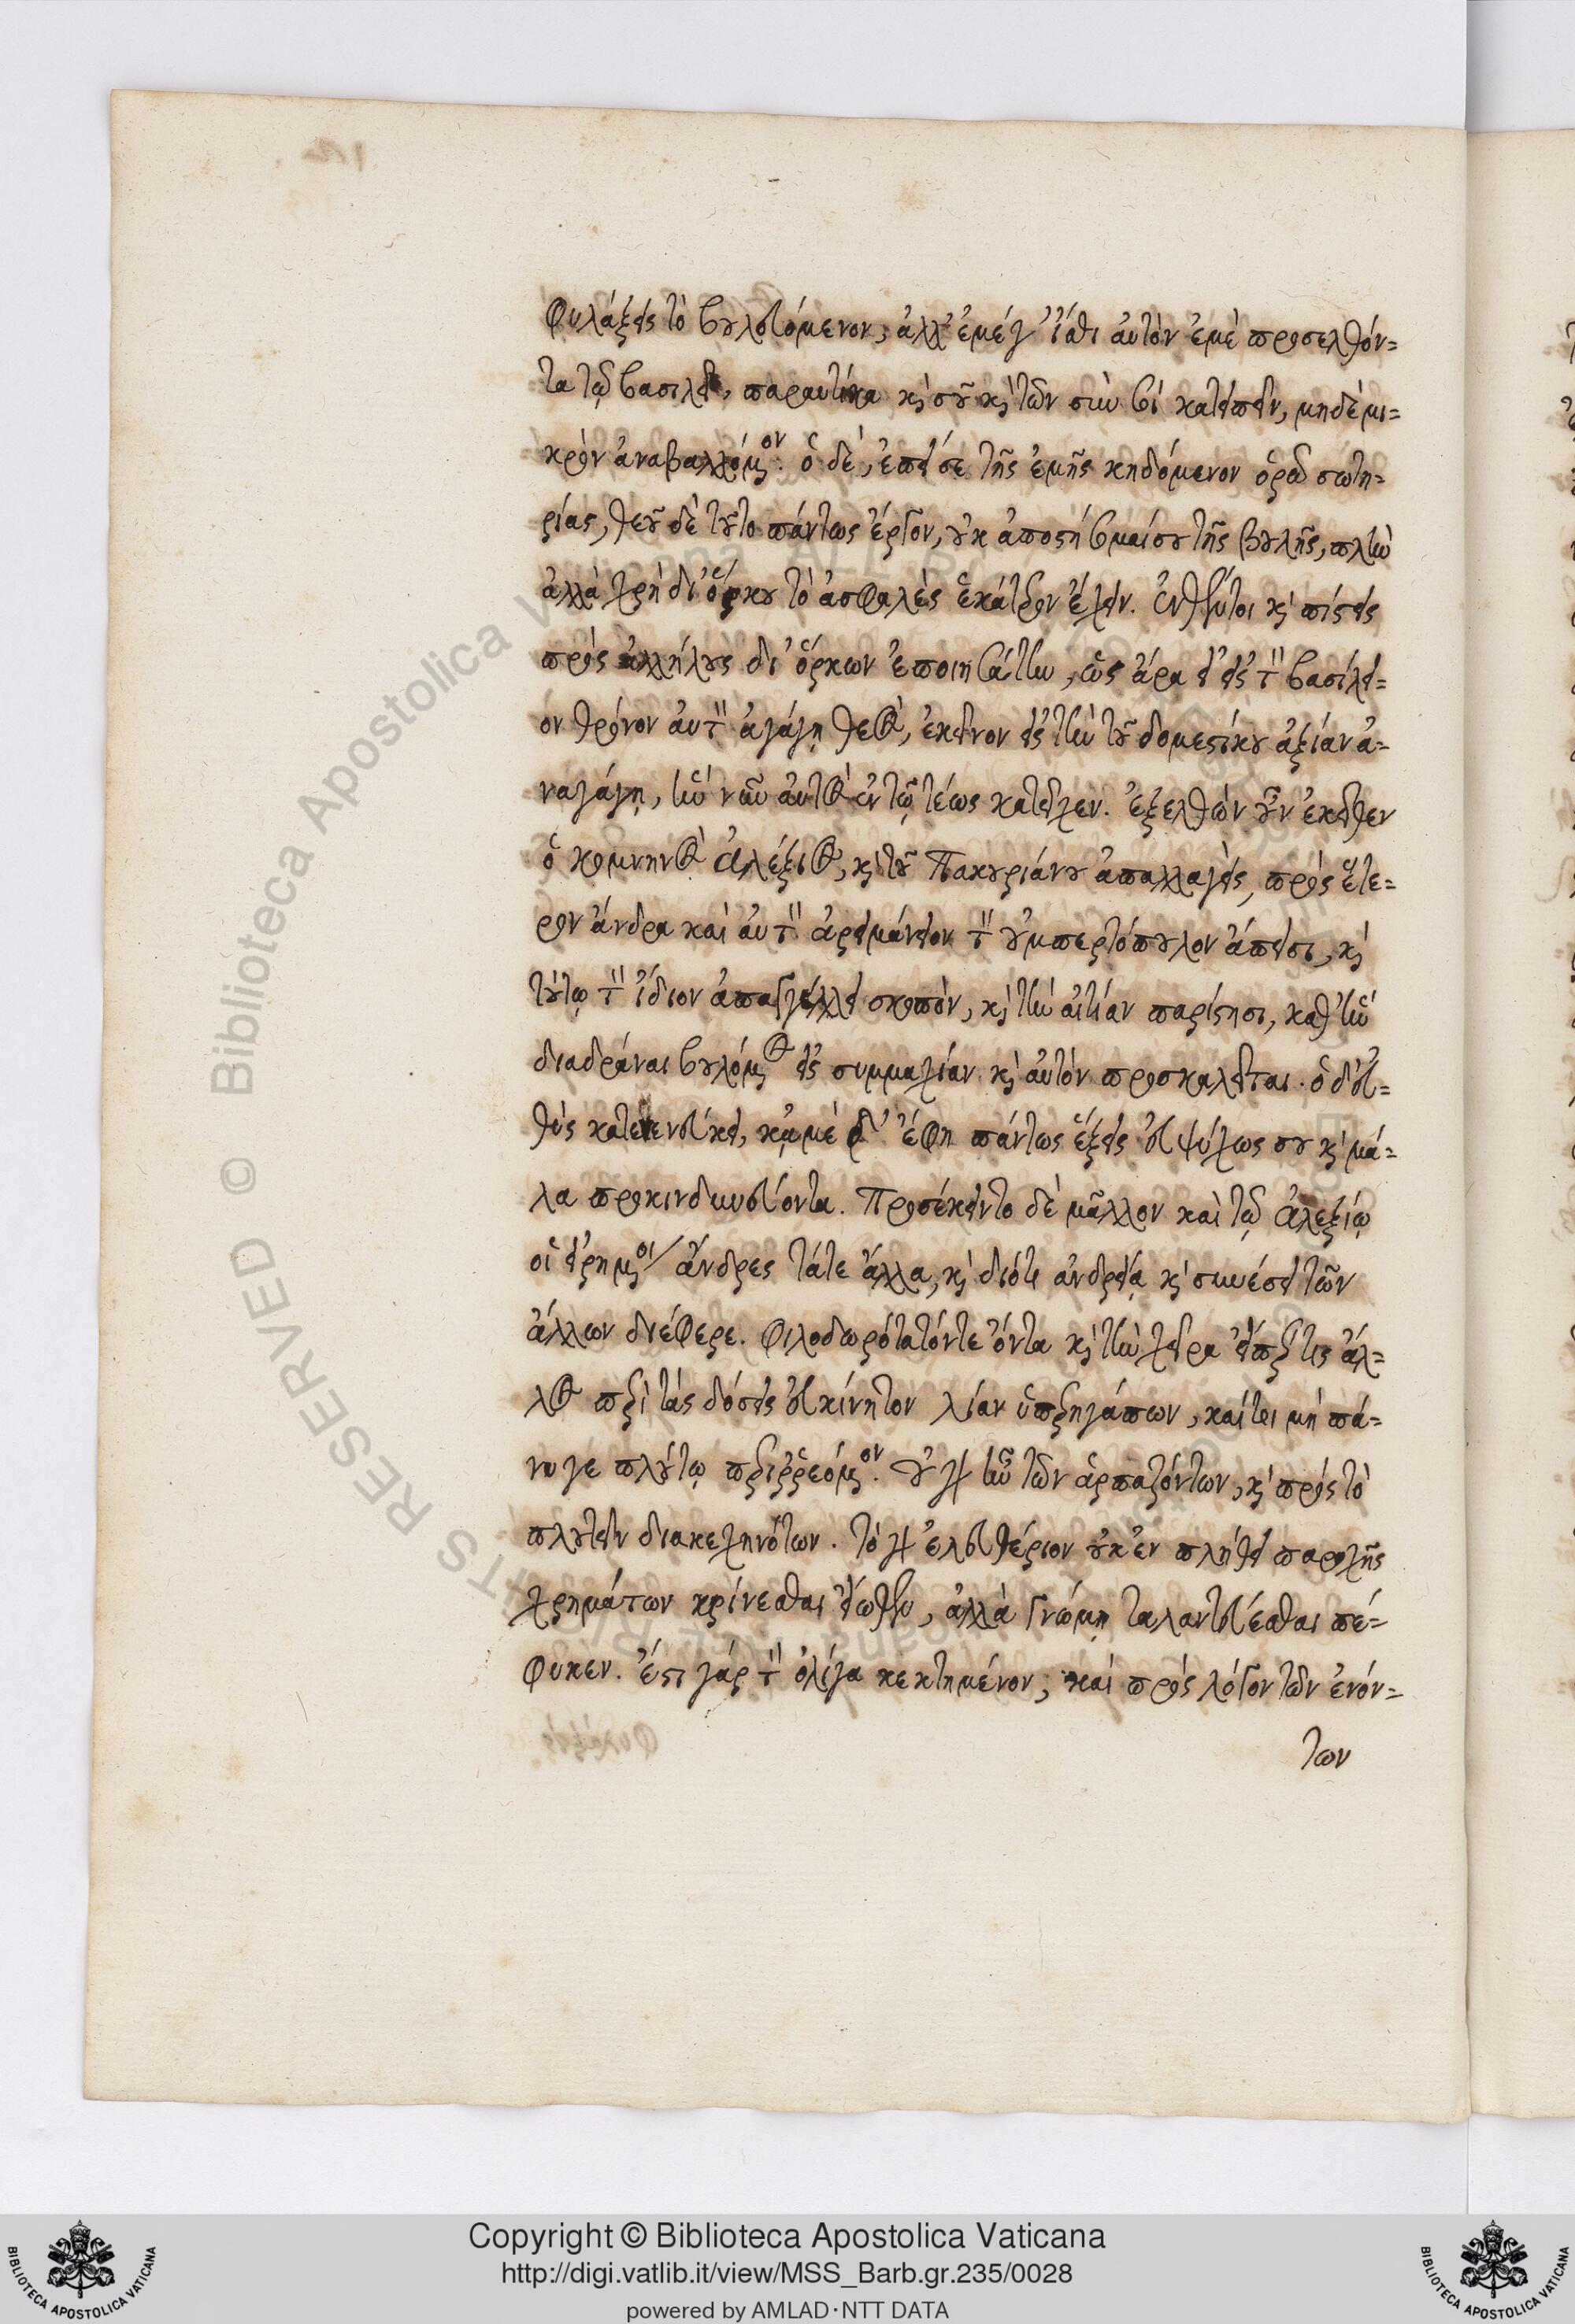 φυλάξεις τὸ βουλευόμενον, ἀλλ' ἐμέγ' ἴσθι αὐτὸν ἐμὲ προσελθόν=
τα τῷ βασιλεῖ, παραυτίκα καὶ σοῦ καὶ τῶν σὺν σοὶ κατειπεῖν, μηδὲ μι=
κρὸν ἀναβαλλόμενον. ὁ δὲ, ἐπεί σε τῆς ἐμῆς κηδόμενον ὁρῶ σωτη=
ρίας, θεοῦ δὲ τοῦτο πάντως ἔργον, οὐκ ἀποστήσομαί σου τῆς βουλῆς, πλὴν
ἀλλὰ χρὴ δι' ὅρκου τὸ ἀσφαλὲς ἑκάτερον ἔχειν. ἐντεῦθέν τοι καὶ πίστεις
πρὸς ἀλλήλους δι' ὅρκων ἐποιησάτην, ὡς ἄρα εἰ εἰς τὸν βασίλει=
ον θρόνον αὐτὸν ἀγάγῃ θεὸς, ἐκεῖνον εἰς τὴν τοῦ δομεστίκου ἀξίαν ἀ=
ναγάγῃ, ἣν νῦν αὐτὸς ἐν τῷ τέως κατεῖχεν. ἐξελθὼν οὖν ἐκεῖθεν
ὁ κομνηνὸς ἀλέξιος, καὶ τοῦ Πακουριάνου ἀπαλλαγεὶς, πρὸς ἕτε=
ρον ἄνδρα καὶ αὐτὸν ἀρειμάνειον τὸν οὐμπερτόπουλον ἄπεισι, καὶ
τούτῳ τὸν ἴδιον ἀπαγγέλλει σκοπὸν, καὶ τὴν αἰτίαν παρίστησι, καθ' ἣν
διαδράναι βουλόμενος εἰς συμμαχίαν καὶ αὐτὸν προσκαλεῖται. ὁ δ' εὐ=
θὺς κατενευκει, κἀμὲ δ' ἔφη πάντως ἕξεις εὐψύχως σου καὶ μά=
λα προκινδυνεύοντα. Προσέκειντο δὲ μᾶλλον καὶ τῷ ἀλεξίῳ
οἱ εἰρημένοι ἄνδρες τά τε ἄλλα, καὶ διότι ἀνδρείᾳ καὶ συνέσει τῶν
ἄλλων διέφερε. φιλοδωρότατόν τε ὄντα καὶ τὴν χεῖρα εἴπερ τις ἄλ=
λος περὶ τὰς δόσεις εὐκίνητον λίαν ὑπερηγάπων, καίτοι μὴ πά=
νυ γε πλούτῳ περιρρεόμενον. οὐ γὰρ ἦν τῶν ἁρπαζόντων, καὶ πρὸς τὸ
πλουτεῖν διακεχηνότων. τὸ γὰρ ἐλευθέριον οὐκ ἐν πλήθει παροχῆς
χρημάτων κρίνεσθαι εἴωθεν, ἀλλὰ γνώμῃ ταλαντεύεσθαι πέ=
φυκεν. ἔστι γὰρ τὸν ὀλίγα κεκτημένον, καὶ πρὸς λόγον τῶν ἐνόν=
των
Copyright © Biblioteca Apostolica Vaticana
http://digi.vatlib.it/view/MSS_Barb.gr.235/0028
powered by AMLAD·NTT DATA